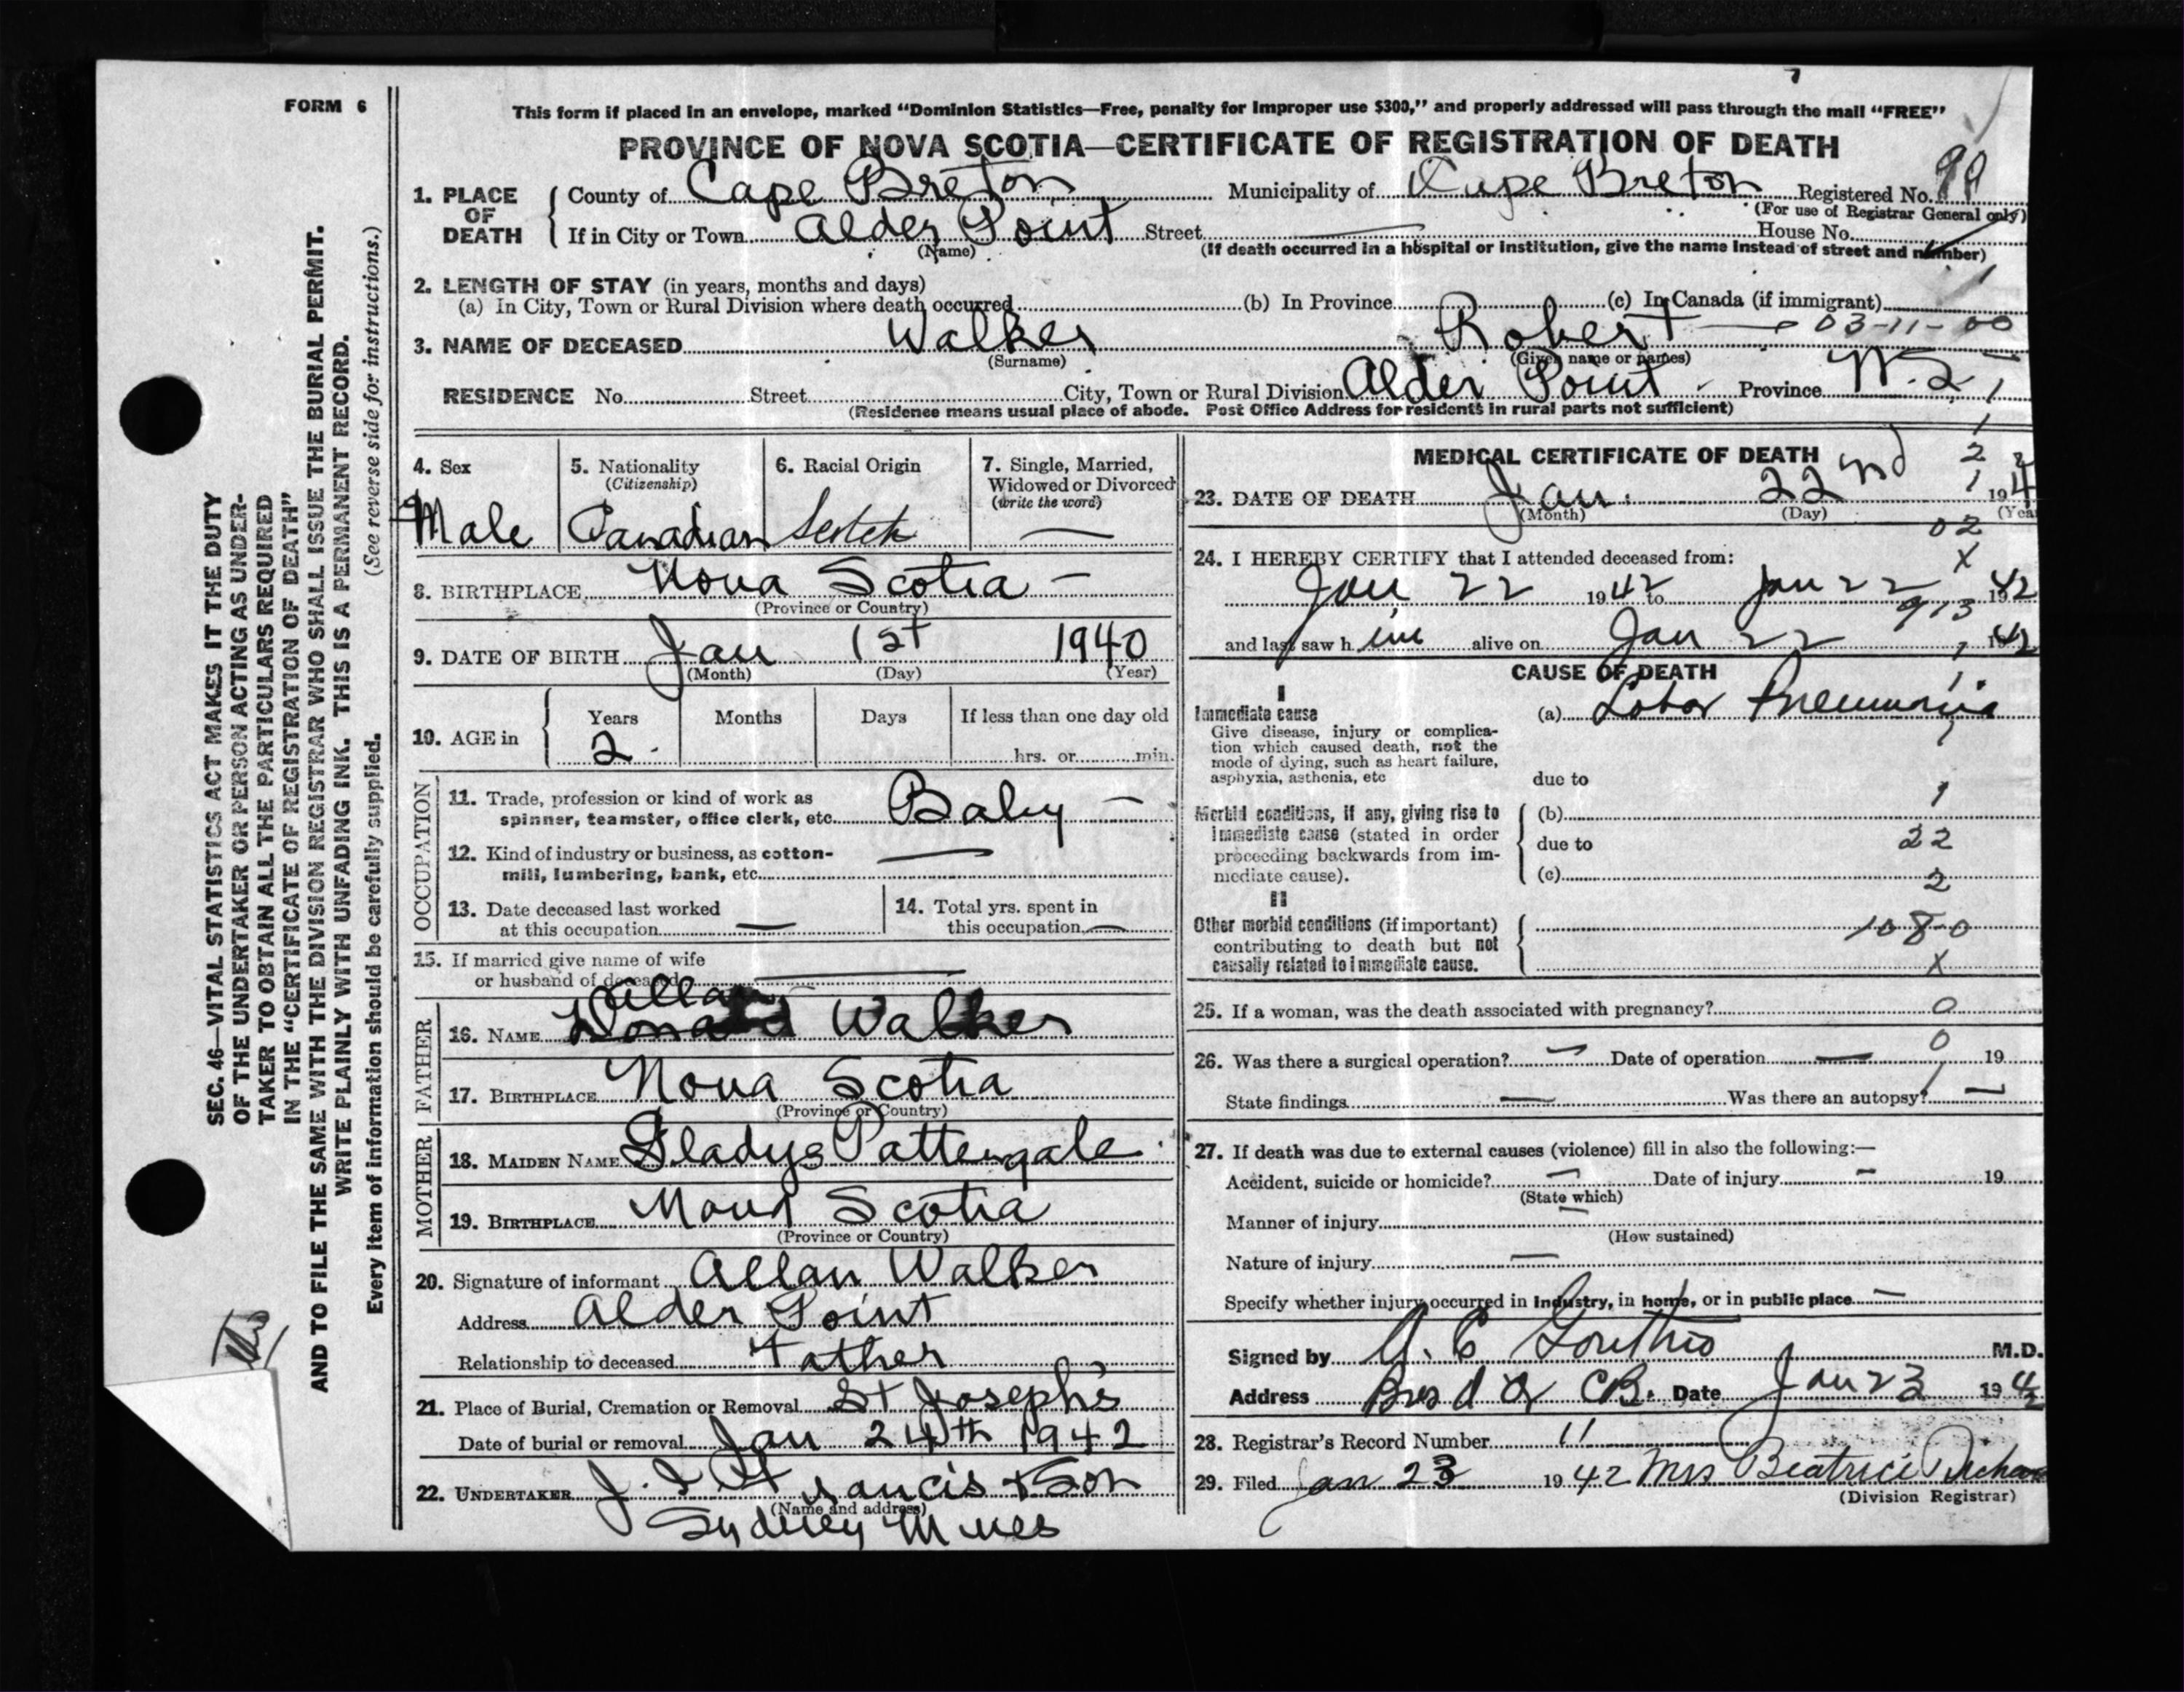 FORM 6
This form if placed in an envelope, marked "Dominion Statistics—Free, penalty for improper use $300," and properly addressed will pass through the mail "FREE"
PROVINCE OF NOVA SCOTIA—CERTIFICATE OF REGISTRATION OF DEATH
1. PLACE OF DEATH County of Cape Breton Municipality of Cape Breton Registered No.
(For use of Registrar General only)
If in City or Town Alder Point Street — House No.
(Name) (If death occurred in a hospital or institution, give the name instead of street and number)
2. LENGTH OF STAY (in years, months and days) 1
(a) In City, Town or Rural Division where death occurred (b) In Province (c) In Canada (if immigrant)
3. NAME OF DECEASED Walker Robert — 03-11-00
(Surname) (Given name or names)
RESIDENCE No. Street City, Town or Rural Division Alder Point Province N.S. 1
(Residence means usual place of abode. Post Office Address for residents in rural parts not sufficient)
4. Sex Male
5. Nationality (Citizenship) Canadian
6. Racial Origin Scotch
7. Single, Married, Widowed or Divorced (write the word) —
8. BIRTHPLACE Nova Scotia —
(Province or Country)
9. DATE OF BIRTH Jan 1st 1940
(Month) (Day) (Year)
10. AGE in Years 2 Months Days If less than one day old
hrs. or min.
OCCUPATION
11. Trade, profession or kind of work as
spinner, teamster, office clerk, etc. Baby —
12. Kind of industry or business, as cotton-
mill, lumbering, bank, etc. —
13. Date deceased last worked
at this occupation —
14. Total yrs. spent in
this occupation —
15. If married give name of wife
or husband of deceased —
FATHER
Allan
16. NAME Donald Walker
17. BIRTHPLACE Nova Scotia
(Province or Country)
MOTHER
18. MAIDEN NAME Gladys Pattengale
19. BIRTHPLACE Nova Scotia
(Province or Country)
20. Signature of informant Allan Walker
Address Alder Point
Relationship to deceased Father
21. Place of Burial, Cremation or Removal St Joseph's
Date of burial or removal Jan 24th 1942
22. UNDERTAKER Francis & Son
(Name and address)
Sydney Mines
MEDICAL CERTIFICATE OF DEATH
23. DATE OF DEATH Jan. 22nd 194
(Month) (Day)
02
24. I HEREBY CERTIFY that I attended deceased from: X
Jan 22 1942 to Jan 22 1942
913
and last saw him alive on Jan 22 1942
CAUSE OF DEATH
I
Immediate cause
Give disease, injury or complica-
tion which caused death, not the
mode of dying, such as heart failure,
asphyxia, asthenia, etc
(a) Lobar Pneumonia
due to
Morbid conditions, if any, giving rise to
immediate cause (stated in order
proceeding backwards from im-
mediate cause).
(b)
due to 22
(c) 2
II
Other morbid conditions (if important)
contributing to death but not
causally related to immediate cause.
108-0
X
25. If a woman, was the death associated with pregnancy? 0
26. Was there a surgical operation? — Date of operation — 0 19
State findings — Was there an autopsy? —
27. If death was due to external causes (violence) fill in also the following:—
Accident, suicide or homicide? — Date of injury — 19
(State which)
Manner of injury —
(How sustained)
Nature of injury —
Specify whether injury occurred in industry, in home, or in public place —
Signed by M.D.
Address CB. Date Jan 23 1942
28. Registrar's Record Number 11
29. Filed Jan 23 1942 Mrs Beatrice
(Division Registrar)
SEC. 46—VITAL STATISTICS ACT MAKES IT THE DUTY
OF THE UNDERTAKER OR PERSON ACTING AS UNDER-
TAKER TO OBTAIN ALL THE PARTICULARS REQUIRED
IN THE "CERTIFICATE OF REGISTRATION OF DEATH"
AND TO FILE THE SAME WITH THE DIVISION REGISTRAR WHO SHALL ISSUE THE BURIAL PERMIT.
WRITE PLAINLY WITH UNFADING INK. THIS IS A PERMANENT RECORD.
Every item of information should be carefully supplied. (See reverse side for instructions.)